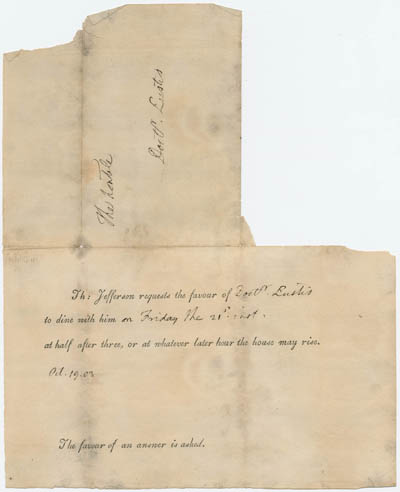 The honble
Doctr. Eustis
Th: Jefferson requests the favour of Doctr. Eustis
to dine with him on Friday the 21st. inst.
at half after three, or at whatever later hour the house may rise.
Oct. 19. 03
The favour of an answer is asked.